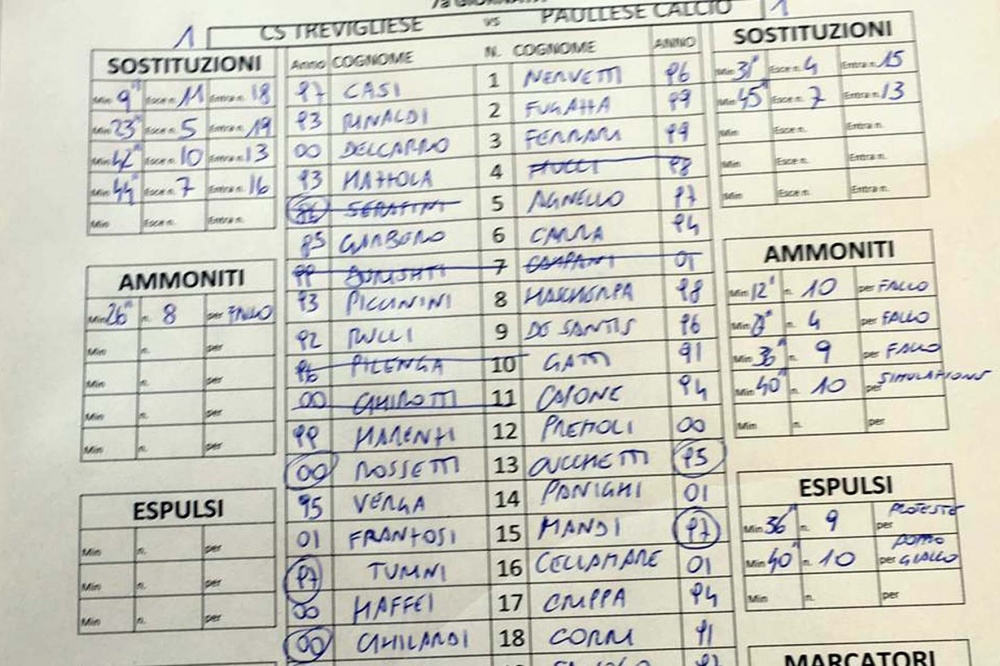 7a GIORNATA
1 CS TREVIGLIESE vs PAULLESE CALCIO 1
SOSTITUZIONI
Min 9" Esce n. 11 Entra n. 18
Min 23" Esce n. 5 Entra n. 19
Min 42" Esce n. 10 Entra n. 13
Min 44" Esce n. 7 Entra n. 16
Min Esce n. Entra n.
AMMONITI
Min 26" n. 8 per FALLO
Min n. per
Min n. per
Min n. per
Min n. per
ESPULSI
Min n. per
Min n. per
Min n. per
Anno COGNOME N. COGNOME ANNO
97 CASI 1 NERVETTI 96
93 RINALDI 2 FUGAZZA 99
00 DELCARRO 3 FERRARI 99
93 MATTOLA 4 98
SERAFINI 5 AGNELLO 97
85 GARBERO 6 CARRA 94
99 7 CAMPANI 01
93 PICCININI 8 98
92 9 DE SANTIS 96
96 PILENGA 10 GATTI 91
00 GHIROTTI 11 CAIONE 94
99 MARENZI 12 PREMOLI 00
00 ROSSETTI 13 OUCCHETTI 95
95 VERGA 14 PANIGHI 01
01 FRANTOSI 15 MANDI 97
97 TUMINI 16 CELLAMARE 01
00 MAFFEI 17 CRIPPA 94
00 GHILARDI 18 CORRI 91
SOSTITUZIONI
Min 31" Esce n. 4 Entra n. 15
Min 45" Esce n. 7 Entra n. 13
Min Esce n. Entra n.
Min Esce n. Entra n.
Min Esce n. Entra n.
AMMONITI
Min 12' n. 10 per FALLO
Min n. 4 per FALLO
Min n. 9 per FALLO
Min 40" n. 10 per SIMULAZIONE
Min n. per
ESPULSI
Min 36" n. 9 per PROTESTE
Min 40" n. 10 per DOPPIO GIALLO
Min n. per
MARCATORI